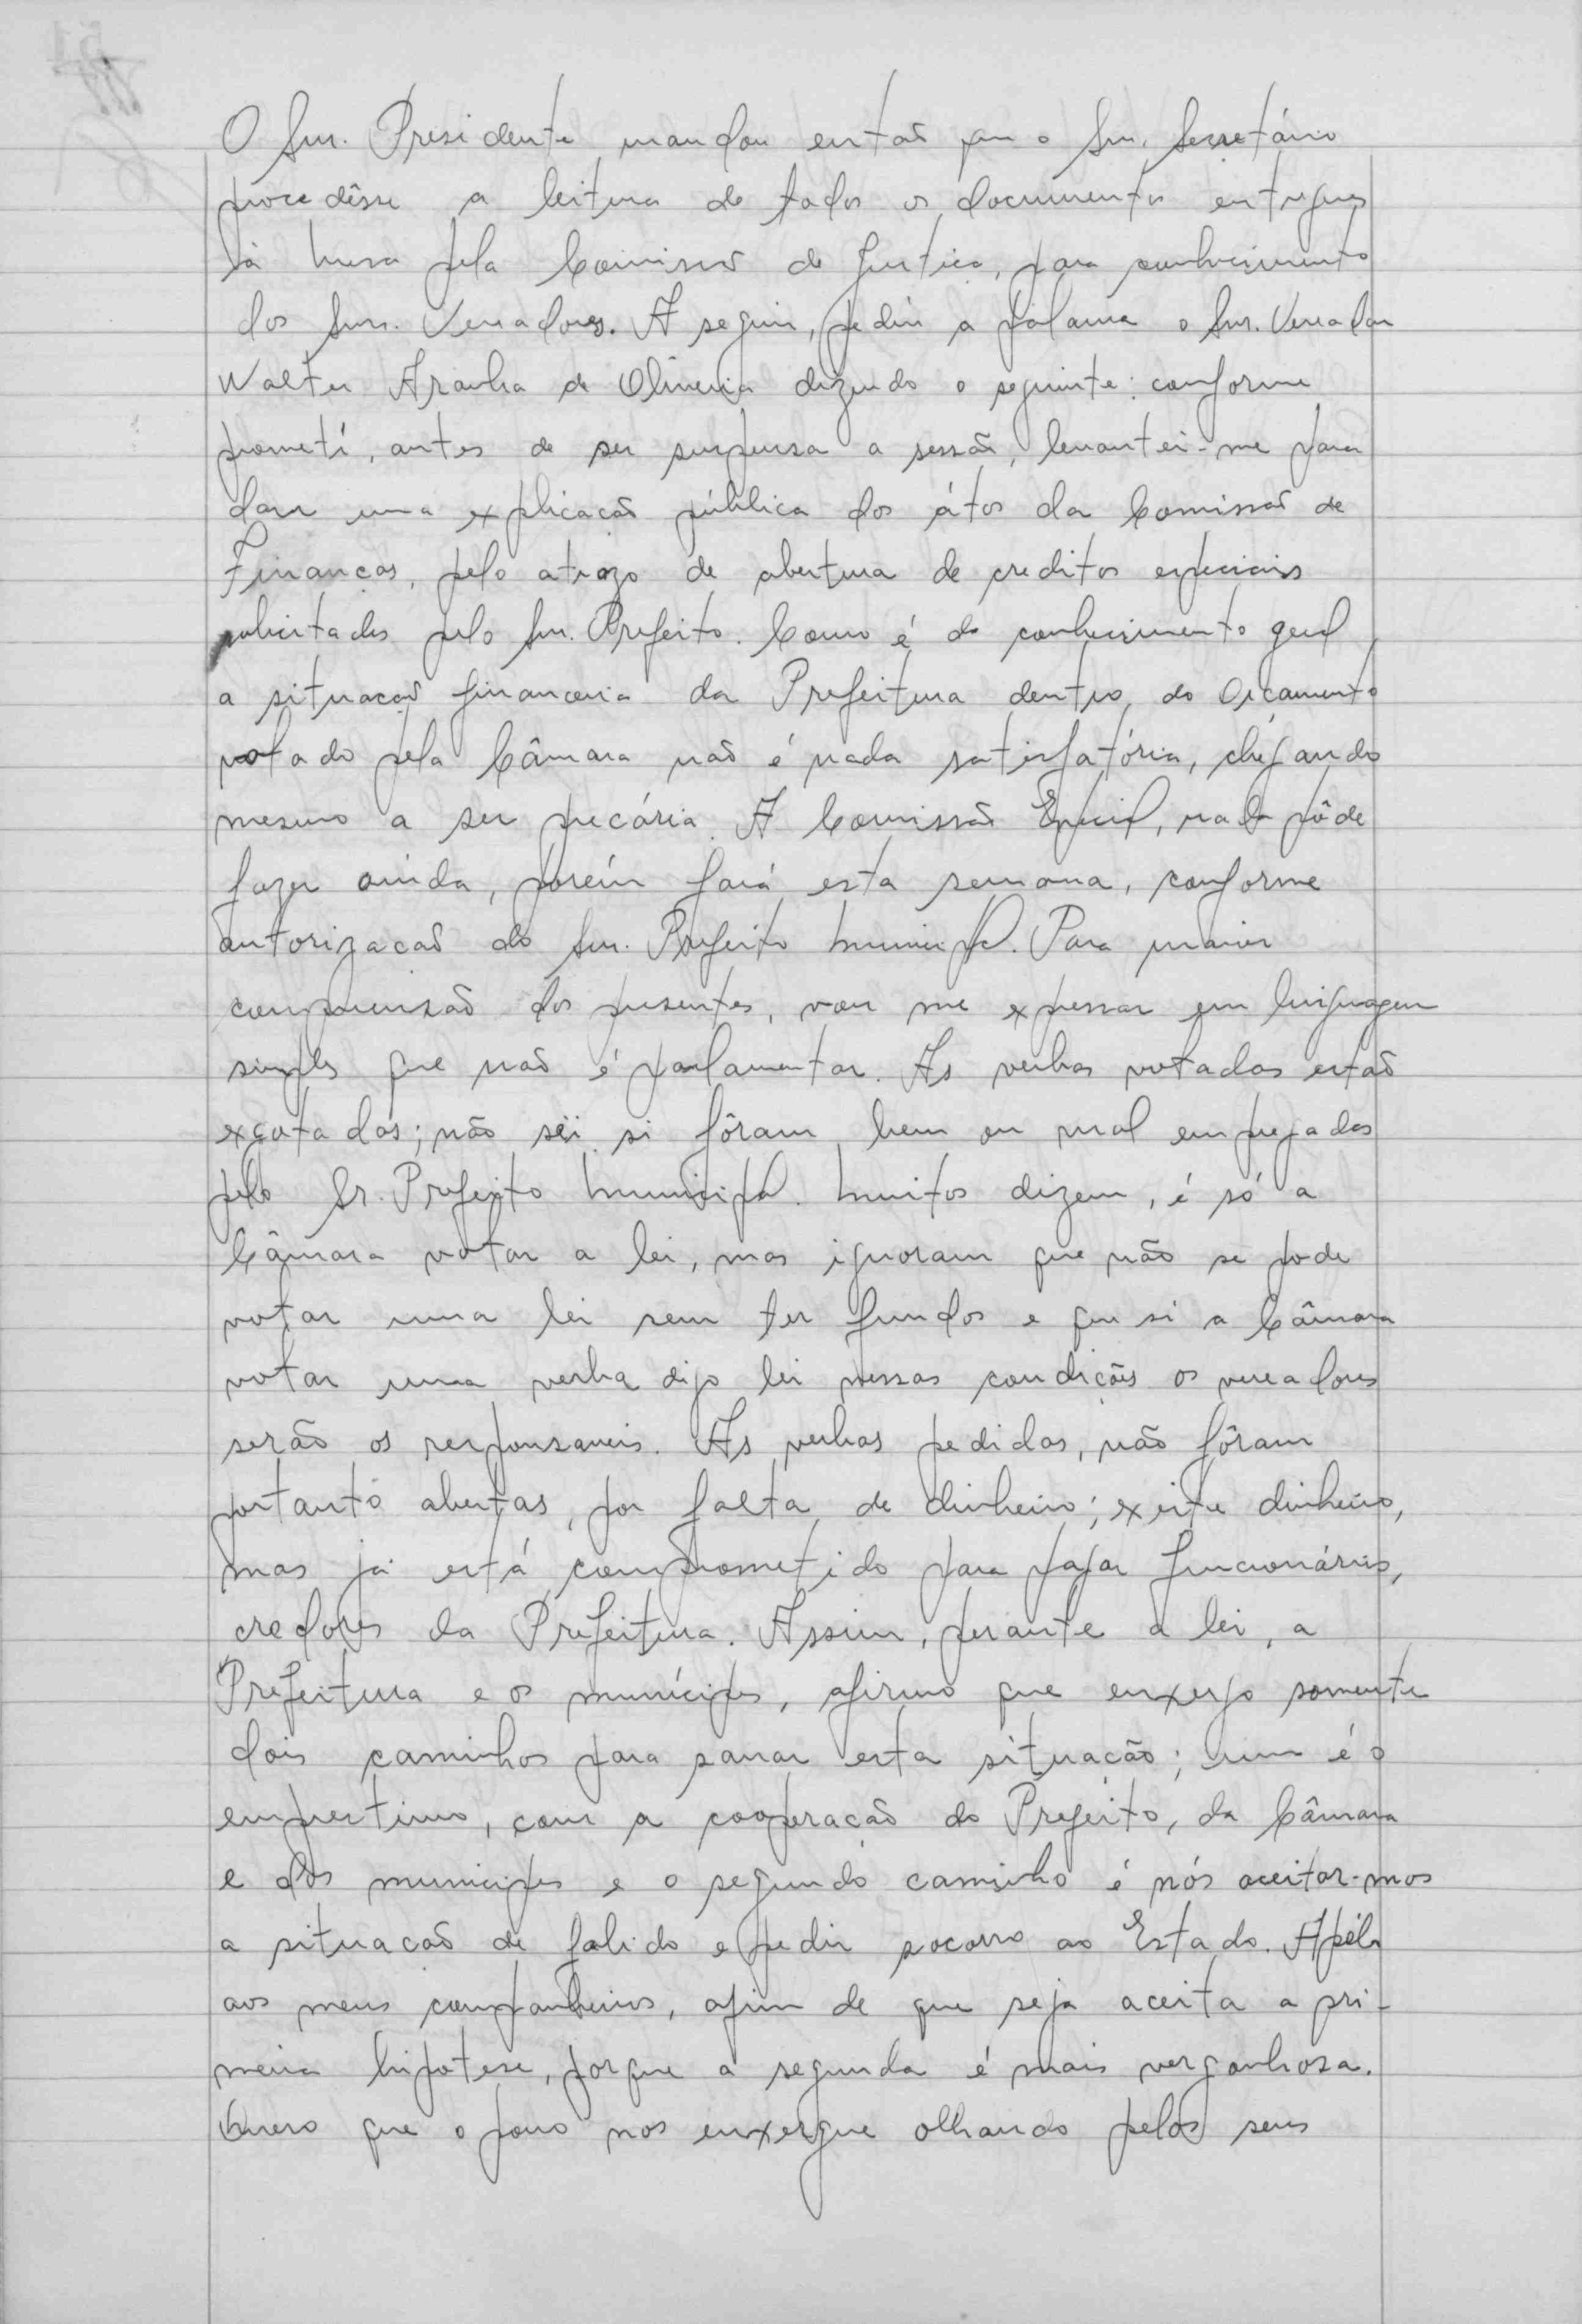 O Snr. Presidente mandou então que o Snr. Secretário
procedêsse a leitura de todos os documentos entregues
à mesa pela Comissão de Justiça, para conhecimento
dos Snrs. Vereadores. A seguir, pediu a palavra o Snr. Vereador
Walter Aranha de Oliveira dizendo o seguinte: conforme
prometí, antes de ser suspensa a sessão, levantei-me para
dar uma explicação pública dos átos da Comissão de
Finanças, pelo atrazo de abertura de creditos especiais
solicitados pelo Snr. Prefeito. Como é do conhecimento geral
a situação financeria da Prefeitura dentro do Orçamento
votado pela Câmara não é nada satisfatória, chegando
mesmo a ser precária. A Comissão Especial, nada pôde
fazer ainda, porém fará esta semana, conforme
autorização do Snr. Prefeito Municipal. Para maior
compreensão dos presentes, vou me expressar em linguagem
simples que não é parlamentar. As verbas votadas estão
exgotadas; não sei si fôram bem ou mal empregadas
pelo Sr. Prefeito Municipal. Muitos dizem, é só a
Câmara votar a lei, mas ignoram que não se pode
votar uma lei sem ter fundos e que si a Câmara
votar uma verba digo lei nessas condições os vereadores
serão os responsaveis. As verbas pedidas, não fôram
portanto abertas, por falta de dinheiro; existe dinheiro,
mas já está comprometido para pagar funcionários,
credores da Prefeitura. Assim, perante a lei, a
Prefeitura e os munícipes, afirmo que enxergo somente
dois caminhos para sanar esta situação; um é o
emprestimo, com a cooperação do Prefeito, da Câmara
e dos municipes e o segundo caminho é nós aceitar-mos
a situação de falido e pedir socorro ao Estado. Apélo
aos meus companheiros, afim de que seja aceita a pri-
meira hipotese, porque a segunda é mais vergonhosa.
Quero que o povo nos enxergue olhando pelos seus